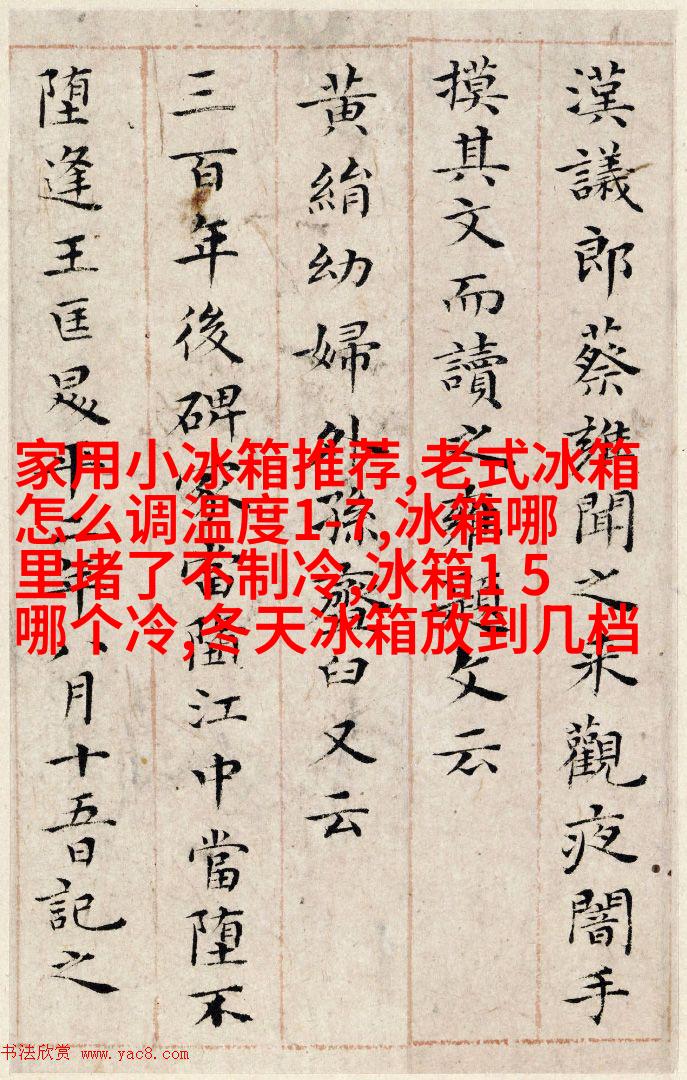 漢議郎蔡雍聞之来觀夜闇手
摸其文而讀之雍題文云
黃絹幼婦外孫齏臼又云
三百年後碑冢當墮江中當堕不
堕逢王匡昇平二年八月十五日記之
家用小冰箱推荐,老式冰箱
怎么调温度1-7,冰箱哪
里堵了不制冷,冰箱1 5
哪个冷,冬天冰箱放到几档
书法欣赏 www.yac8.com